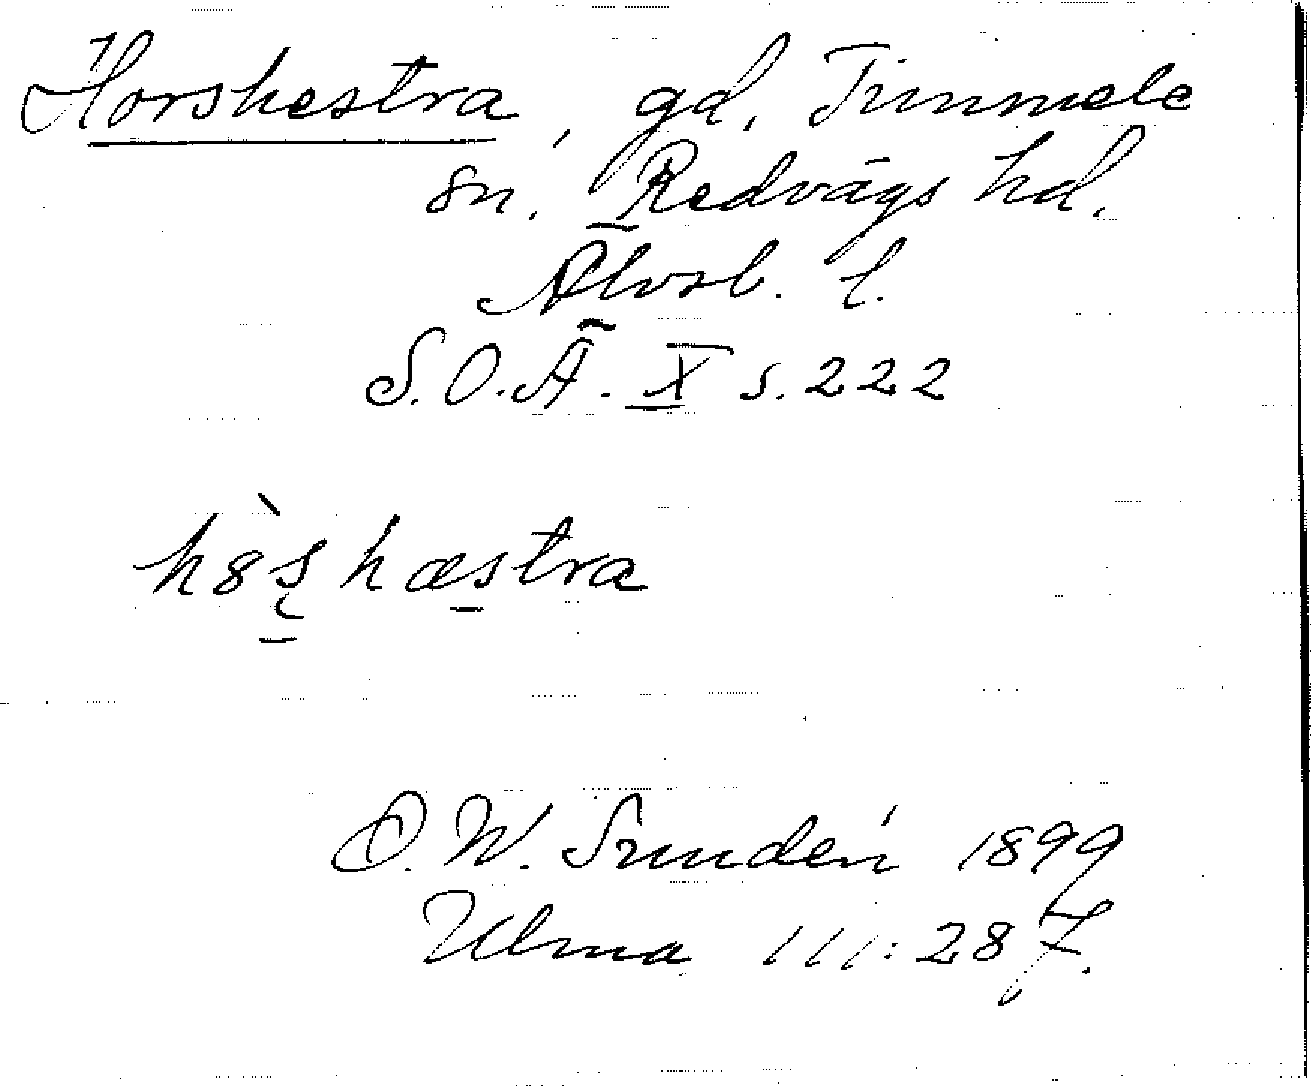 Horshestra, gd, Timmele
sn. Redvägs hd.
Älvsb. l.
S.O.Ä. X s. 222
hȣ̀s̨hæstra
D. W. Sundén 1899
Ulma 111:287.